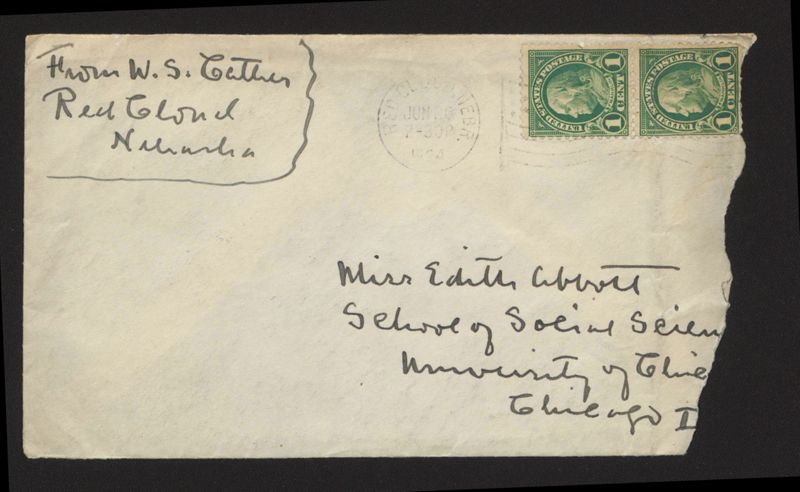 From W. S. Cather
Red Cloud
Nebraska
RED CLOUD, NEBR.
JUN 26
7-30P
UNITED STATES POSTAGE
1 CENT 1
UNITED STATES POSTAGE
1 CENT 1
Miss Edith Abbott
School of Social Scien
University of Chic
Chicago I